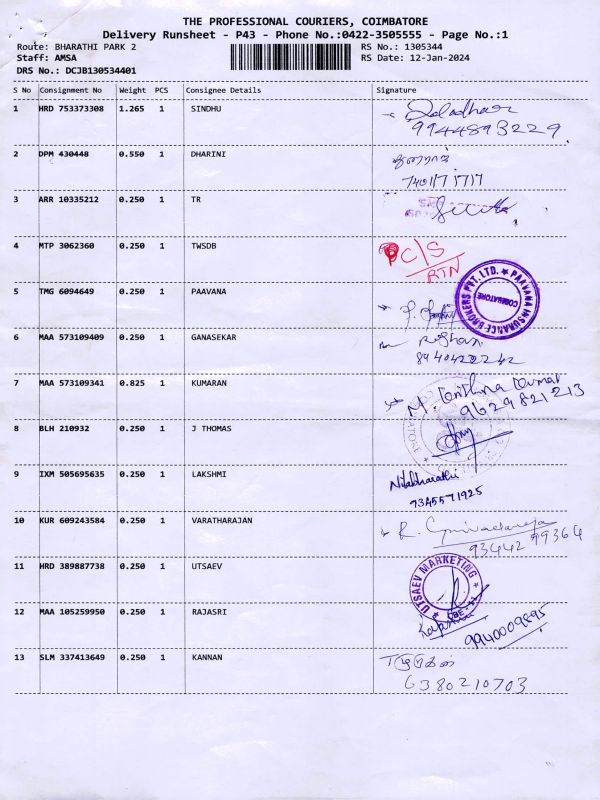 THE PROFESSIONAL COURIERS, COIMBATORE
Delivery Runsheet - P43 - Phone No.:0422-3505555 - Page No.:1
Route: BHARATHI PARK 2 RS No.: 1305344
Staff: AMSA RS Date: 12-Jan-2024
DRS No.: DCJB130534401
S No Consignment No Weight PCS Consignee Details Signature
1 HRD 753373308 1.265 1 SINDHU
9944893229
2 DPM 430448 0.550 1 DHARINI
3 ARR 10335212 0.250 1 TR
4 MTP 3062360 0.250 1 TWSDB C/S
RTN
5 TMG 6094649 0.250 1 PAAVANA
PAAVANA INSURANCE BROKERS PVT. LTD. ★ COIMBATORE
6 MAA 573109409 0.250 1 GANASEKAR
8940422242
7 MAA 573109341 0.825 1 KUMARAN M. Krishna Kumar
9629821213
8 BLH 210932 0.250 1 J THOMAS
9 IXM 505695635 0.250 1 LAKSHMI Nilabharathi
9345571925
10 KUR 609243584 0.250 1 VARATHARAJAN R.
93442 99364
11 HRD 389887738 0.250 1 UTSAEV
UTSAEV MARKETING ★
12 MAA 105259950 0.250 1 RAJASRI
9940009895
13 SLM 337413649 0.250 1 KANNAN
6380210703